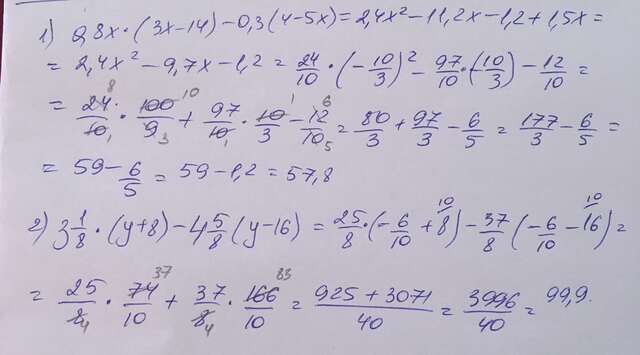 1) 0,8x·(3x-14)-0,3(4-5x)=2,4x²-11,2x-1,2+1,5x=
=2,4x²-9,7x-1,2=24/10·(-10/3)²-97/10·(-10/3)-12/10=
=24 8/10 1·100 10/9 3+97/10 1·10 1/3-12 6/10 5=80/3+97/3-6/5=177/3-6/5=
=59-6/5=59-1,2=57,8
2) 3 1/8·(y+8)-4 5/8(y-16)=25/8·(-6/10+8 10)-37/8(-6/10-16 10)=
=25/8 4·74 37/10+37/8 4·166 83/10=925+3071/40=3996/40=99,9.